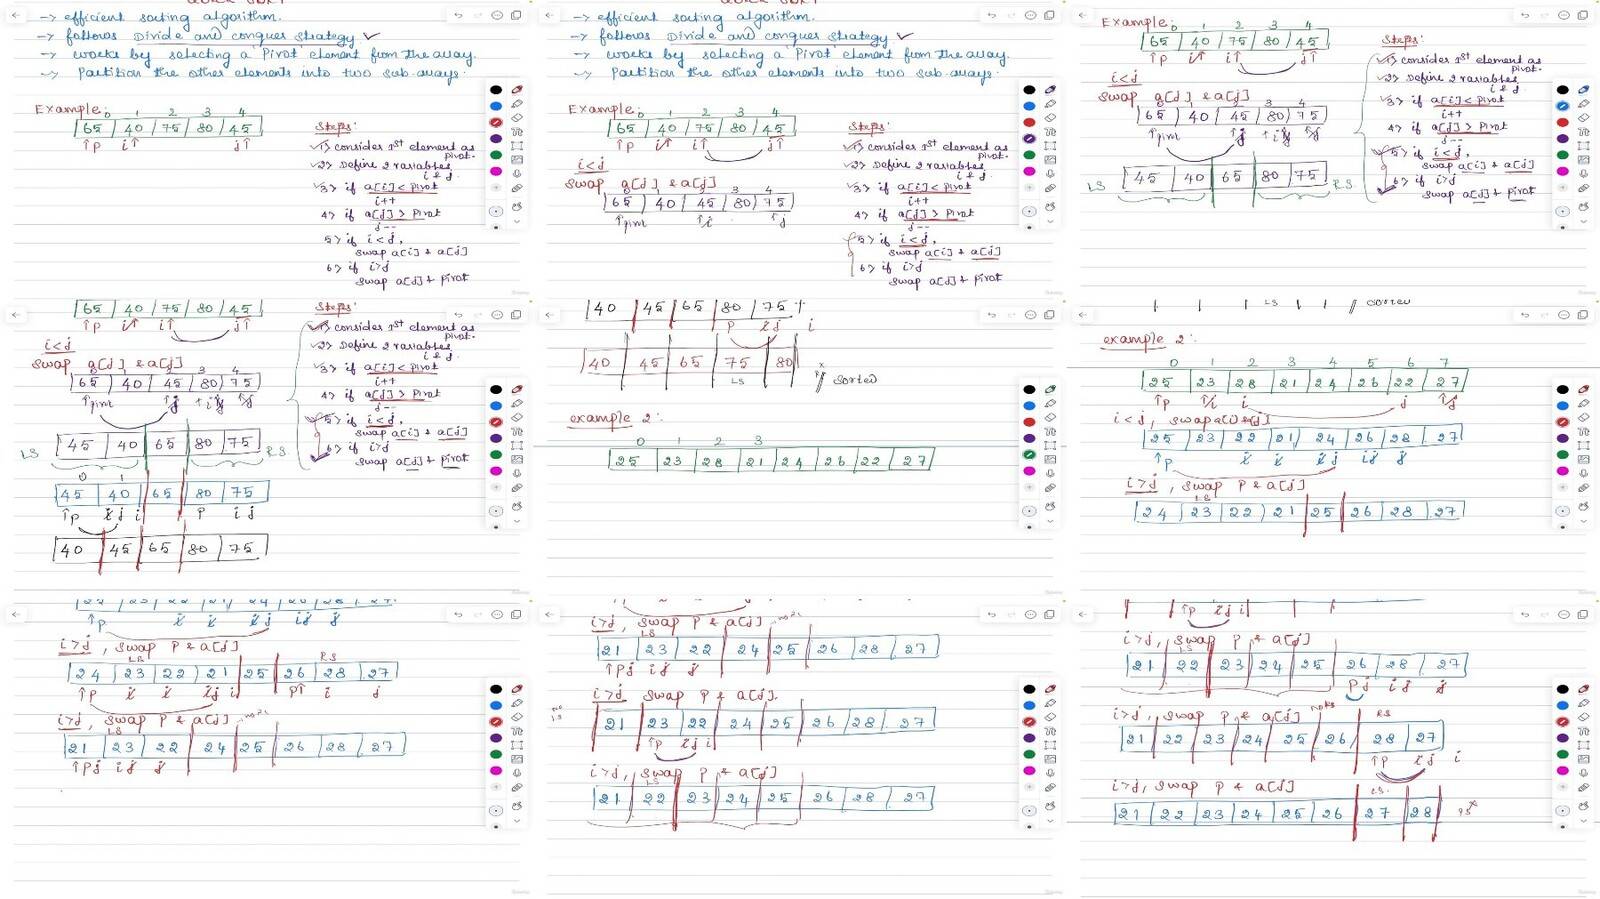 -> efficient sorting algorithm.
-> follows Divide and conquer strategy ✓
-> works by selecting a 'Pivot' element from the array.
-> Partition the other elements into two sub-arrays.
Example:
0 1 2 3 4
65 40 75 80 45
↑P i↑ j↑
Steps:
1> consider 1st element as pivot.
2> Define 2 variables i & j.
3> if a[i] < pivot
i++
4> if a[j] > Pivot
j--
5> if i<j,
swap a[i] & a[j]
6> if i>j
swap a[j] & pivot
-> efficient sorting algorithm.
-> follows Divide and conquer strategy ✓
-> works by selecting a 'Pivot' element from the array.
-> Partition the other elements into two sub-arrays.
Example:
0 1 2 3 4
65 40 75 80 45
↑P i↑ i↑ j↑
i<j
swap a[j] & a[j]
3 4
65 40 45 80 75
↑pivot ↑i ↑j
Steps:
1> consider 1st element as pivot.
2> Define 2 variables i & j.
3> if a[i] < pivot
i++
4> if a[j] > Pivot
j--
5> if i<j,
swap a[i] & a[j]
6> if i>j
swap a[j] & pivot
Example:
0 1 2 3 4
65 40 75 80 45
↑P i↑ i↑ j↑
i<j
swap a[j] & a[j]
3 4
65 40 45 80 75
↑pivot
LS 45 40 65 80 75 RS
Steps:
1> consider 1st element as pivot.
2> Define 2 variables i & j.
3> if a[i] < pivot
i++
4> if a[j] > Pivot
j--
5> if i<j,
swap a[i] & a[j]
6> if i>j
swap a[j] & pivot
65 40 75 80 45
↑P i↑ i↑ j↑
i<j
swap a[j] & a[j]
3 4
65 40 45 80 75
↑pivot
LS 45 40 65 80 75 RS
0 1
45 40 65 80 75
↑P i j i P i j
40 45 65 80 75
Steps:
1> consider 1st element as pivot.
2> Define 2 variables i & j.
3> if a[i] < pivot
i++
4> if a[j] > Pivot
j--
5> if i<j,
swap a[i] & a[j]
6> if i>j
swap a[j] & pivot
40 45 65 80 75
P i j i
40 45 65 75 80
LS
sorted
example 2:
0 1 2 3
25 23 28 21 24 26 22 27
LS sorted
example 2:
0 1 2 3 4 5 6 7
25 23 28 21 24 26 22 27
↑P ↑i i j ↑j
i<j, swap a[i] & a[j]
25 23 22 21 24 26 28 27
↑P i i i j i j j
i>j, swap P & a[j]
LS
24 23 22 21 25 26 28 27
↑P i i i j i j j
i>j, swap P & a[j]
LS RS
24 23 22 21 25 26 28 27
↑P i i i j i P↑ i j
i>j, swap P & a[j]
LS
21 23 22 24 25 26 28 27
↑P j i j j
i>j, swap P & a[j]
LS
21 23 22 24 25 26 28 27
↑P j i j j
i>j, swap P & a[j].
no LS
21 23 22 24 25 26 28 27
↑P i j i
i>j, swap P & a[j]
LS
21 22 23 24 25 26 28 27
↑P i j i
i>j, swap P & a[j]
LS
21 22 23 24 25 26 28 27
P j i j j
i>j, swap P & a[j] RS
21 22 23 24 25 26 28 27
↑P i j i
i>j, swap P & a[j] LS
21 22 23 24 25 26 27 28 RS